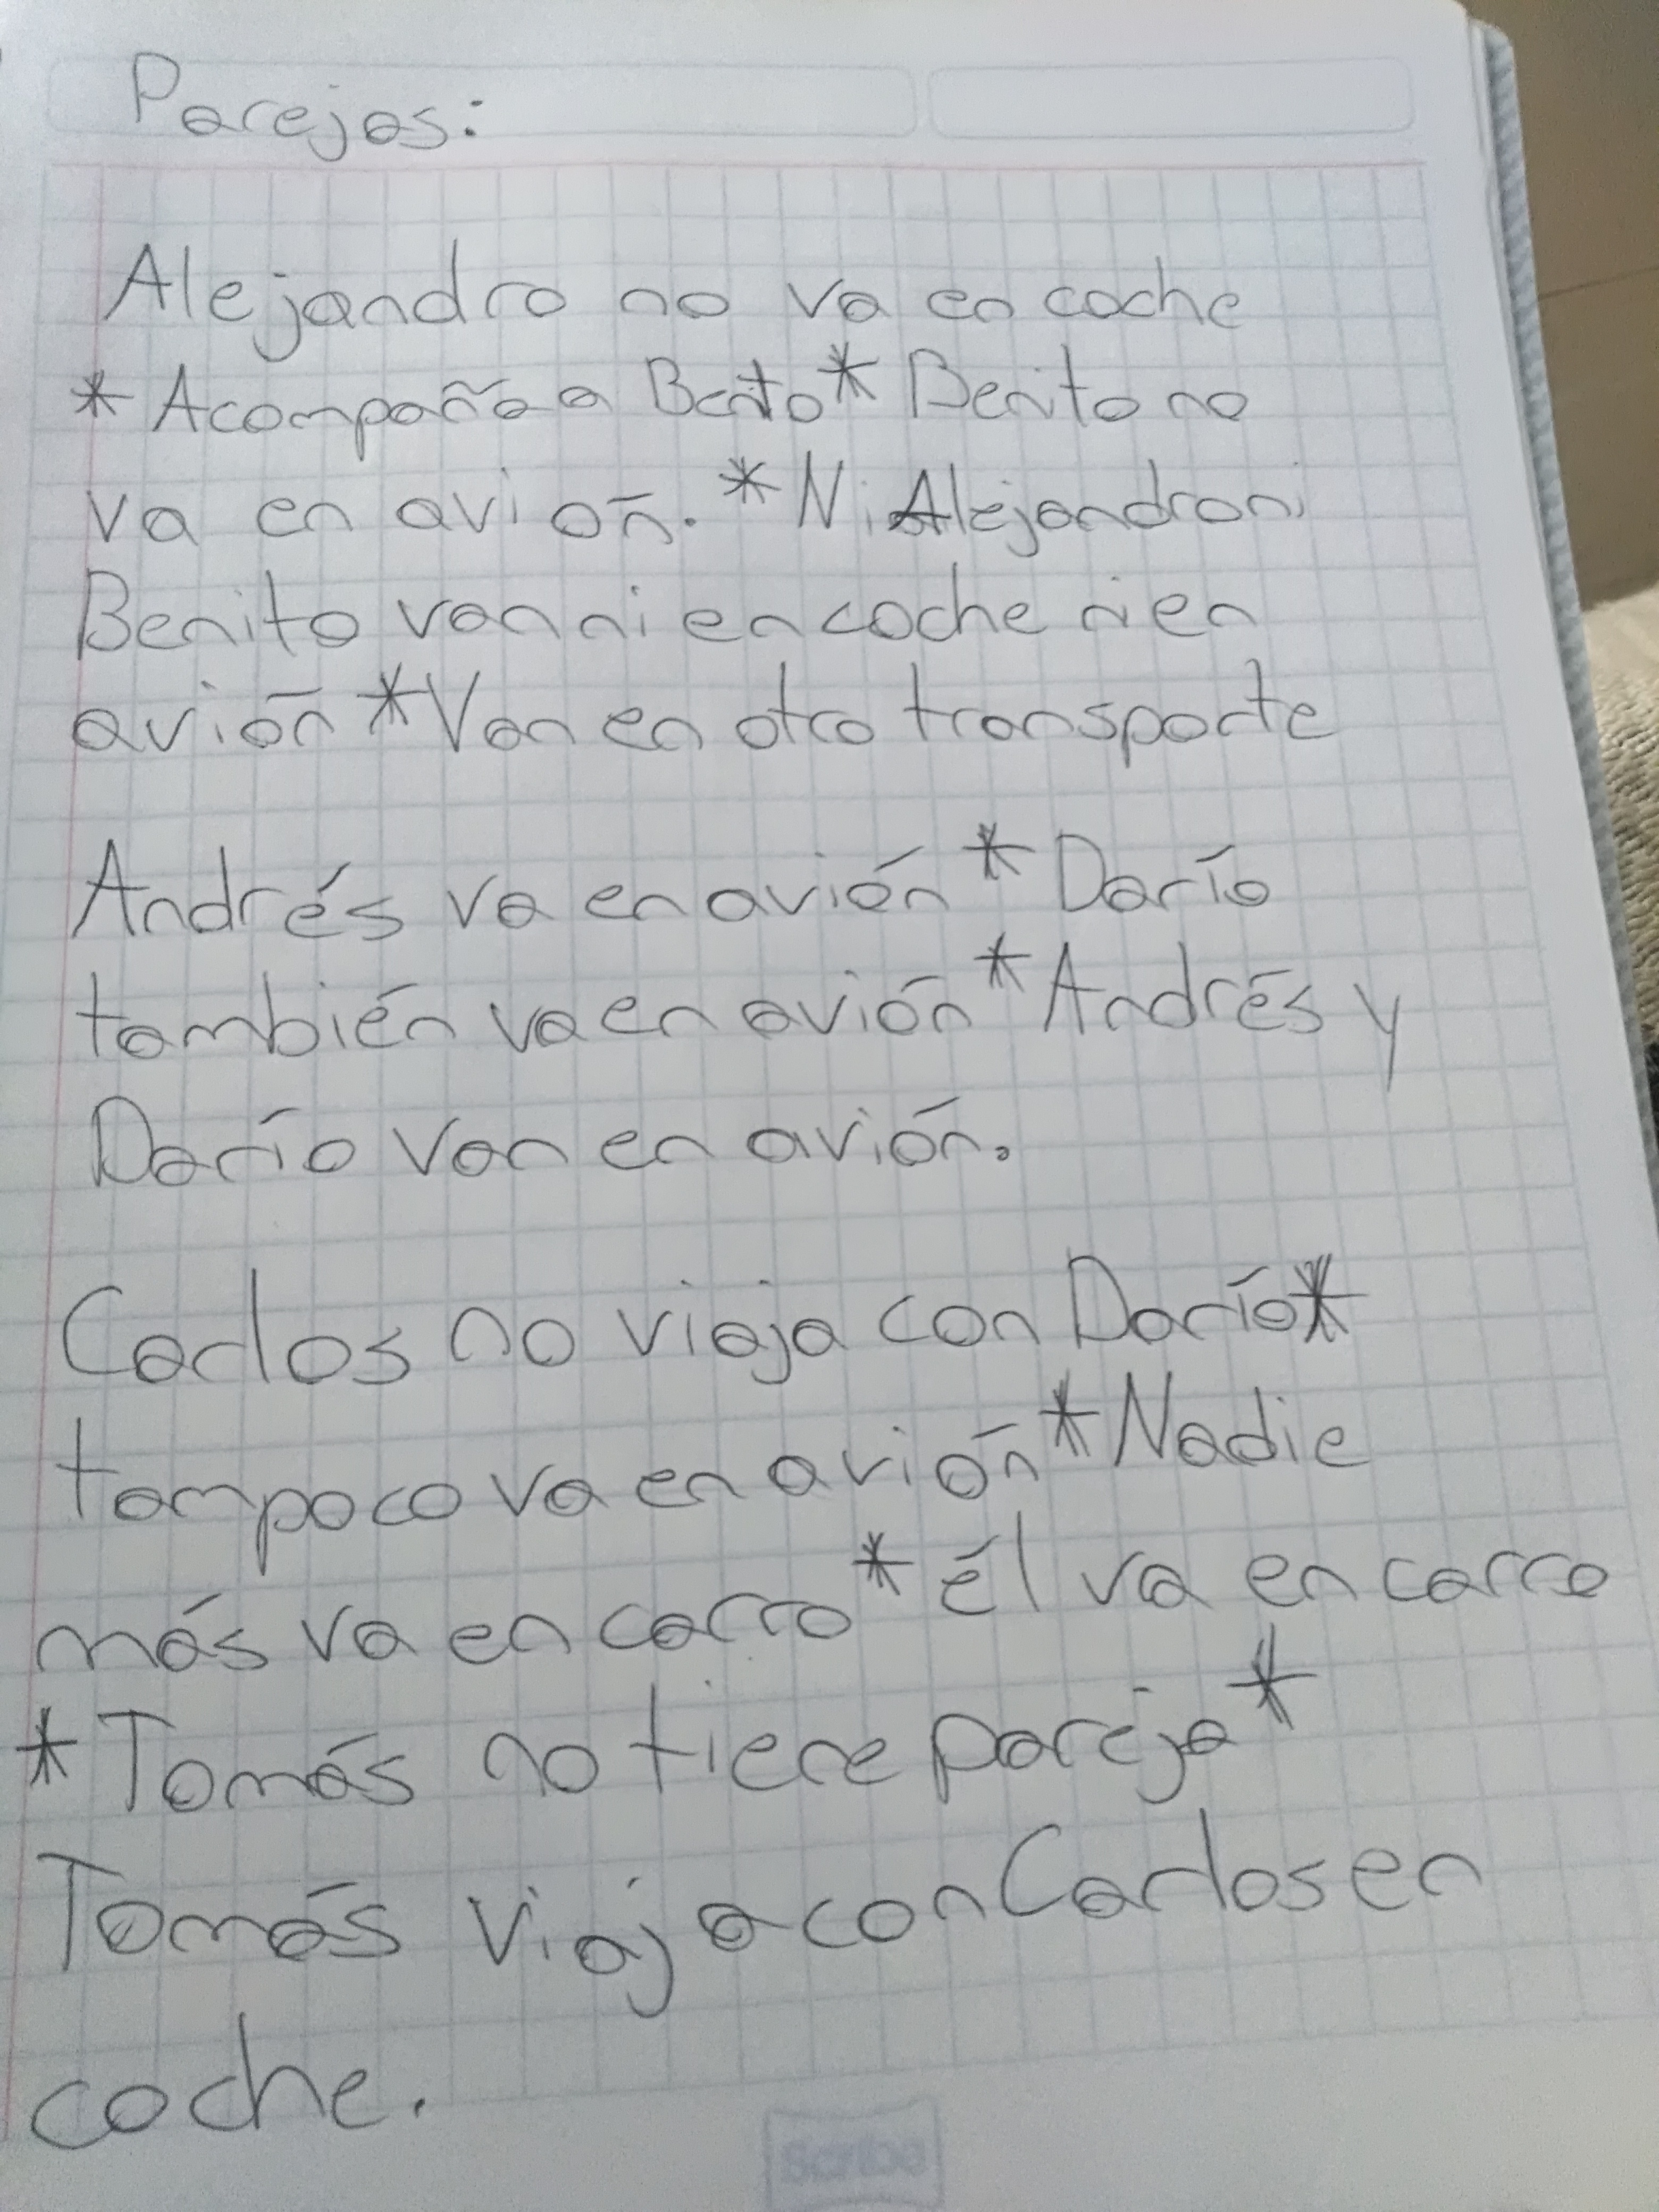 Parejas:
Alejandro no va en coche
* Acompaña a Benito * Benito no
va en avión. * Ni Alejandro ni
Benito van ni en coche ni en
avión * Van en otro transporte
Andrés va en avión * Darío
también va en avión * Andrés y
Darío van en avión.
Carlos no viaja con Darío *
tampoco va en avión * Nadie
más va en carro * él va en carro
* Tomás no tiene pareja *
Tomás viaja con Carlos en
coche.
Scribe